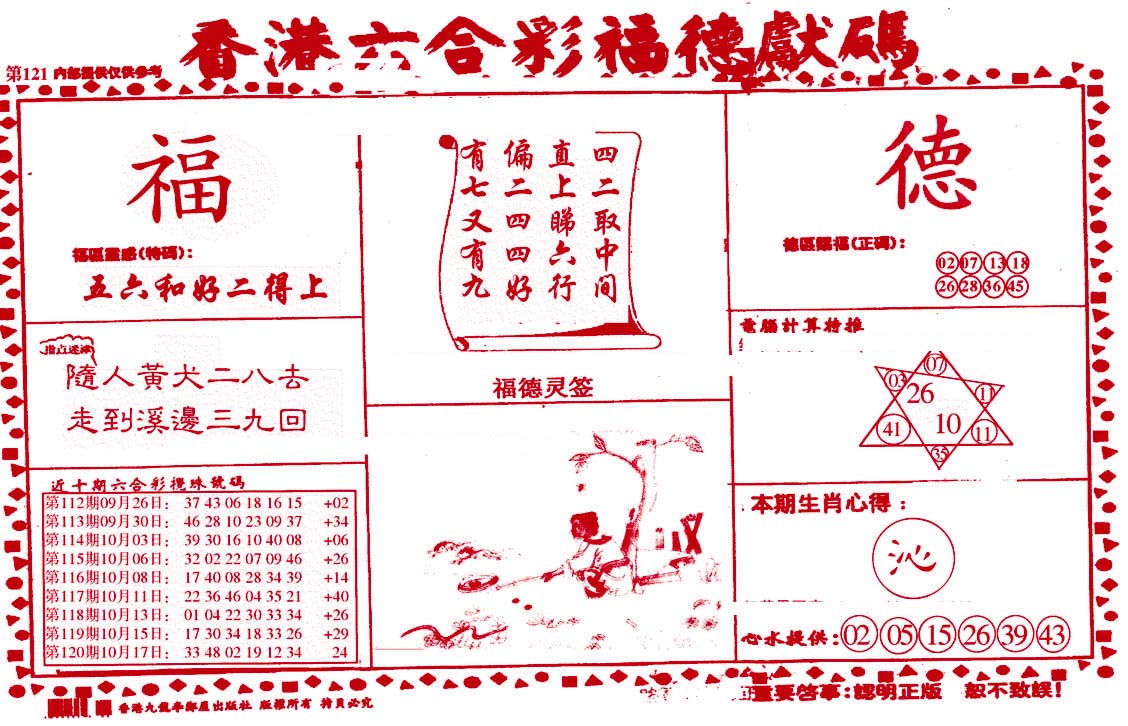 香港六合彩福德獻碼
第121 內部提供仅供参考
福
福區靈感(特碼):
五六和好二得上
指点迷津
隨人黃犬二八去
走到溪邊三九回
近十期六合彩攪珠號碼
第112期09月26日: 37 43 06 18 16 15 +02
第113期09月30日: 46 28 10 23 09 37 +34
第114期10月03日: 39 30 16 10 40 08 +06
第115期10月06日: 32 02 22 07 09 46 +26
第116期10月08日: 17 40 08 28 34 39 +14
第117期10月11日: 22 36 46 04 35 21 +40
第118期10月13日: 01 04 22 30 33 34 +26
第119期10月15日: 17 30 34 18 33 26 +29
第120期10月17日: 33 48 02 19 12 34 24
四二取中间
直上睇六行
偏二四四好
有七又有九
福德灵签
德
德區賜福(正碼):
02 07 13 18
26 28 36 45
電腦計算特推
07
03 26 11
41 10 11
35
本期生肖心得:
沁
心水提供: 02 05 15 26 39 43
重要啓事:認明正版 恕不致誤!
版權所有 拷貝必究